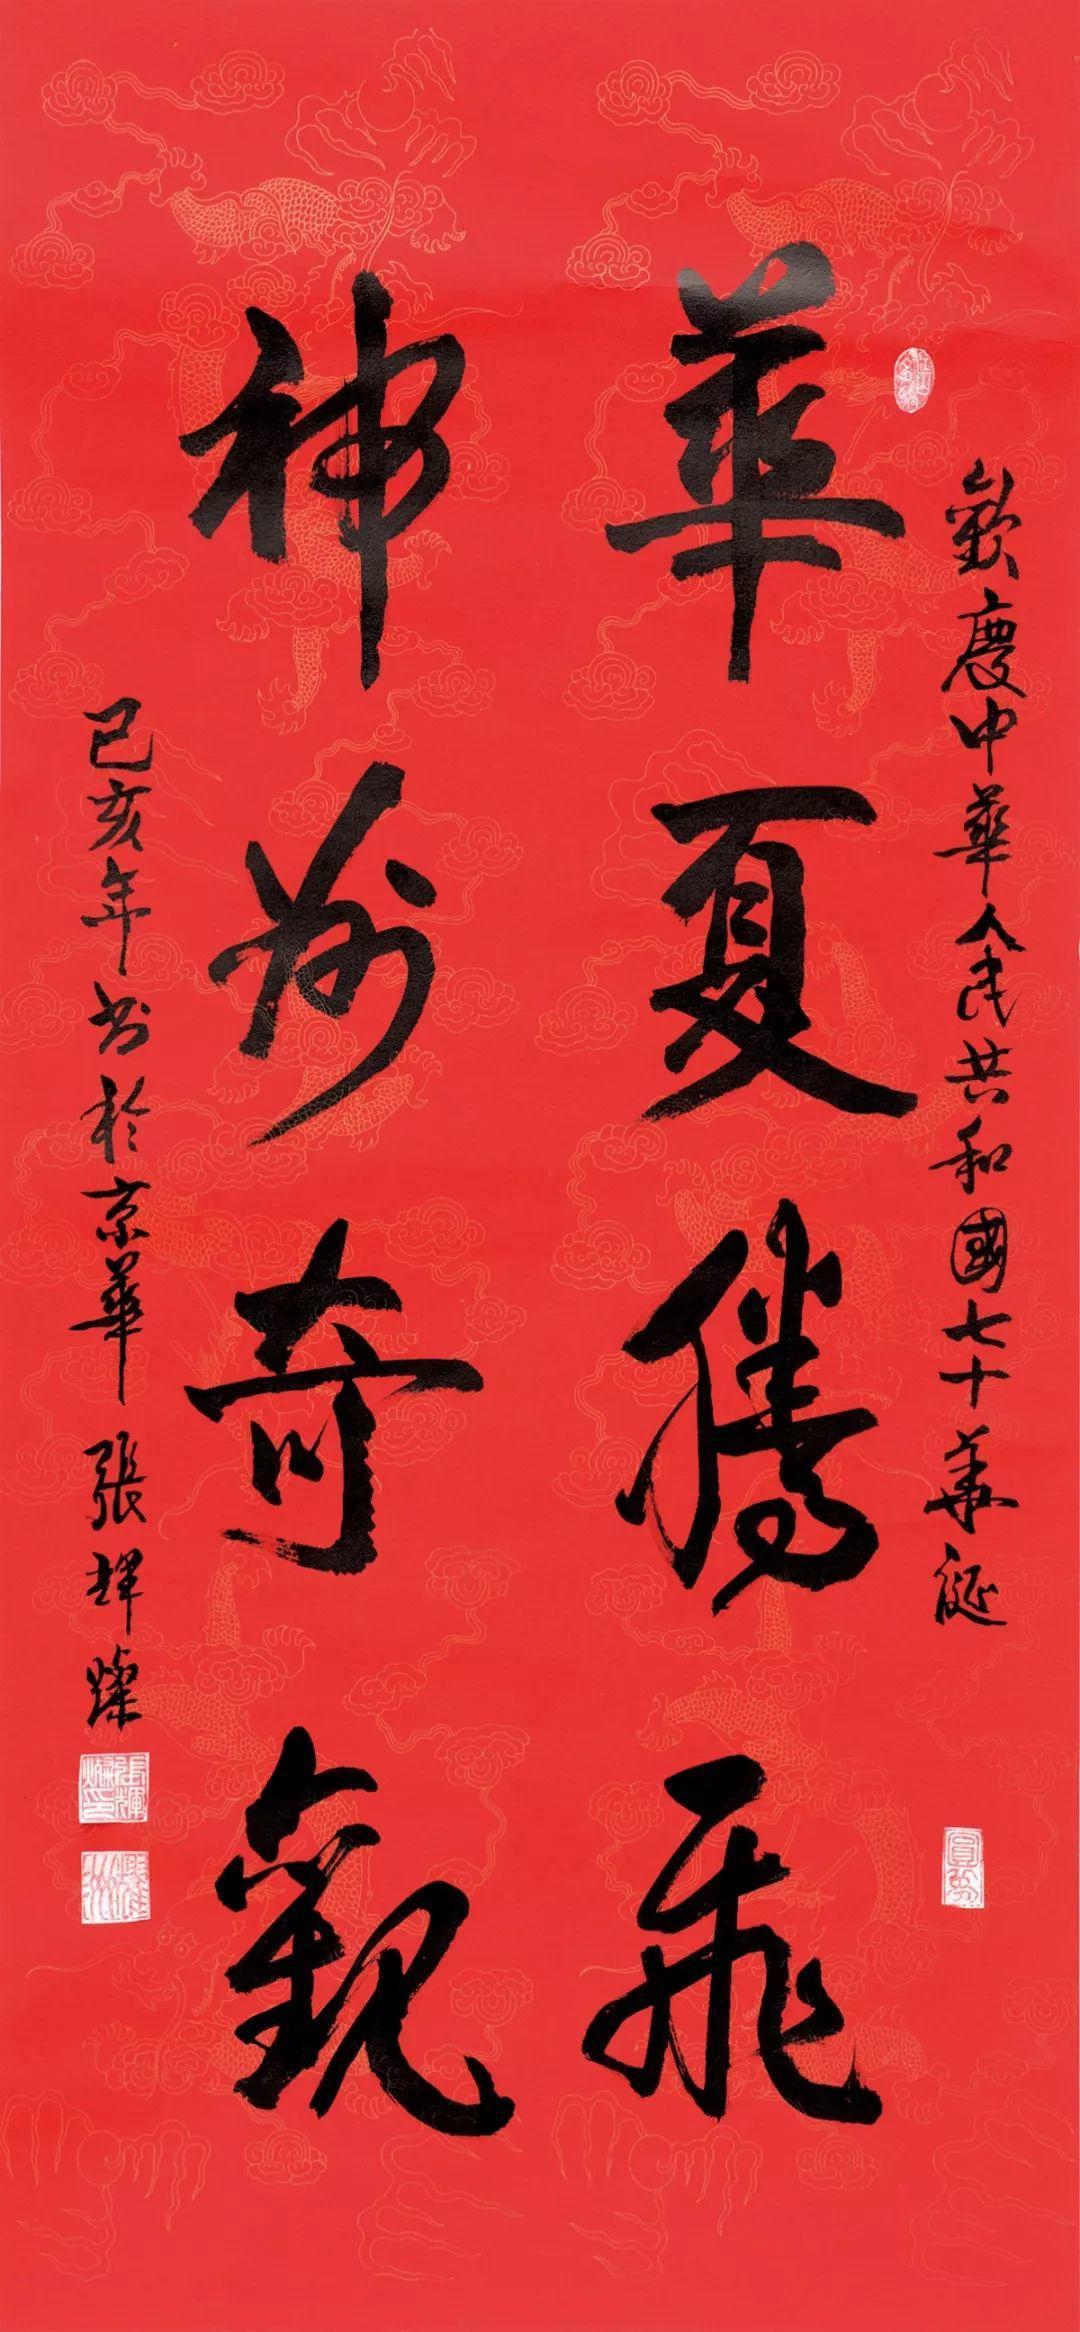 歡慶中華人民共和國七十華誕
華夏騰飛
神州奇觀
己亥年书於京華 張輝燦
張輝燦印